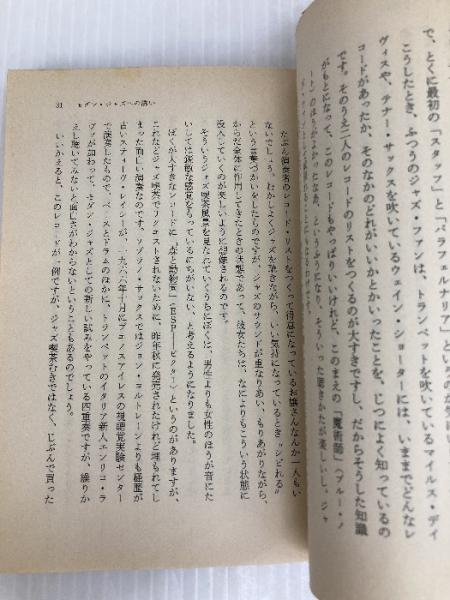 で、とくに最初の「スタッフ」と「パラフェルナリア」という
こうしたとき、ふつうのジャズ・ファンは、トランペットを吹いているマイルス・デイ
ヴィスや、テナー・サックスを吹いているウェイン・ショーターには、いままでどんなレ
コードがあったか、そのなかのどれがいいかとかいったことを、じつによく知っているの
です。そのうえ二人のレコードのリストをつくるのが大すきですし、だからそうした知識
がもとになって、このレコードもやっぱりいいけれど、このまえの「魔術師」（ブルー・ノ
ート）のほうがよかったなあ、というふうになり、そういった聴きかたが楽しいし、ジャ
31 モダン・ジャズへの誘い
たぶん演奏者のレコード・リストをつくって得意になっているお嬢さんなんか一人もい
ないでしょう。むかしよくジャズを聴きながら、いい気持になっているとき“シビれる”
という言葉づかいをしたものですが、ジャズのサウンドが重なりあい、もりあがりながら、
からだ全体に作用してきたときの状態であって、彼女たちは、なによりもこういう状態に
没入していくのが楽しいように想像されるのです。
そういうジャズ喫茶風景を見なれていくうちにぼくは、男性よりも女性のほうが音にた
いしては鋭敏な感覚をもっているにちがいない、と考えるようになりました。
ぼくが大すきなレコードに「森と動物園」（ESP――ビクター）というのがありますが、
これなどジャズ喫茶でリクエストされないために、昨年秋に発売されたけれど埋もれてし
まった面白い演奏なのです。ソプラノ・サックスではジョン・コルトレーンよりも経歴が
古いスティーヴ・レイシーが、一九六六年十月にブエノスアイレスの視聴覚実験センター
で演奏したもので、ベースとドラムのほかに、トランペットのイタリア新人エンリコ・ラ
ヴァが加わって、モダン・ジャズとしての新しい試みをやっている四重奏ですが、繰りか
えし聴いてみないと面白さがわからないということもあるのでしょう。
いいかえると、このレコードが一例ですが、ジャズ喫茶むきではなく、じぶんで買った